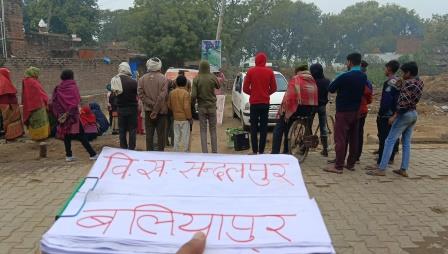 वि.स:- सन्दलपुर
बलियापुर